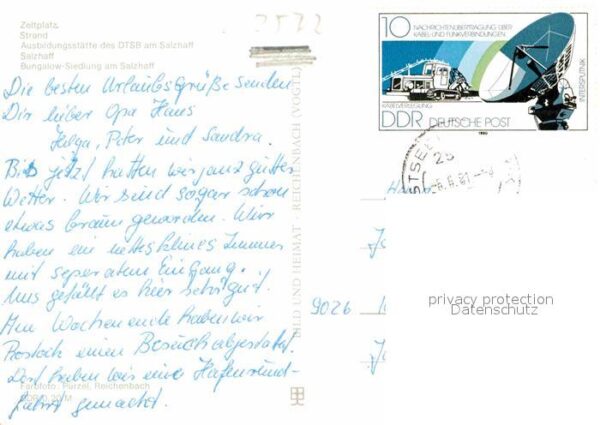 Zeltplatz
Strand
Ausbildungsstätte des DTSB am Salzhaff
Salzhaff
Bungalow-Siedlung am Salzhaff
2572
Die besten Urlaubsgrüße senden
Dir lieber Opa Hans
Helga, Peter und Sandra.
Bis jetzt hatten wir ganz gutes
Wetter. Wir sind sogar schon
etwas braun geworden. Wir
haben ein nettes kleines Zimmer
mit seperatem Eingang.
Uns gefällt es hier sehr gut.
Am Wochenende haben wir
Rostock einen Besuch abgestattet.
Dort haben wir eine Hafenrund-
fahrt gemacht.
Farbfoto: Purzel, Reichenbach
BILD UND HEIMAT · REICHENBACH (VOGTL)
10 NACHRICHTENÜBERTRAGUNG ÜBER
KABEL- UND FUNKVERBINDUNGEN
INTERSPUTNIK
KABELVERLEGUNG
DDR DEUTSCHE POST
1980
OSTSEE
25
9026
privacy protection
Datenschutz